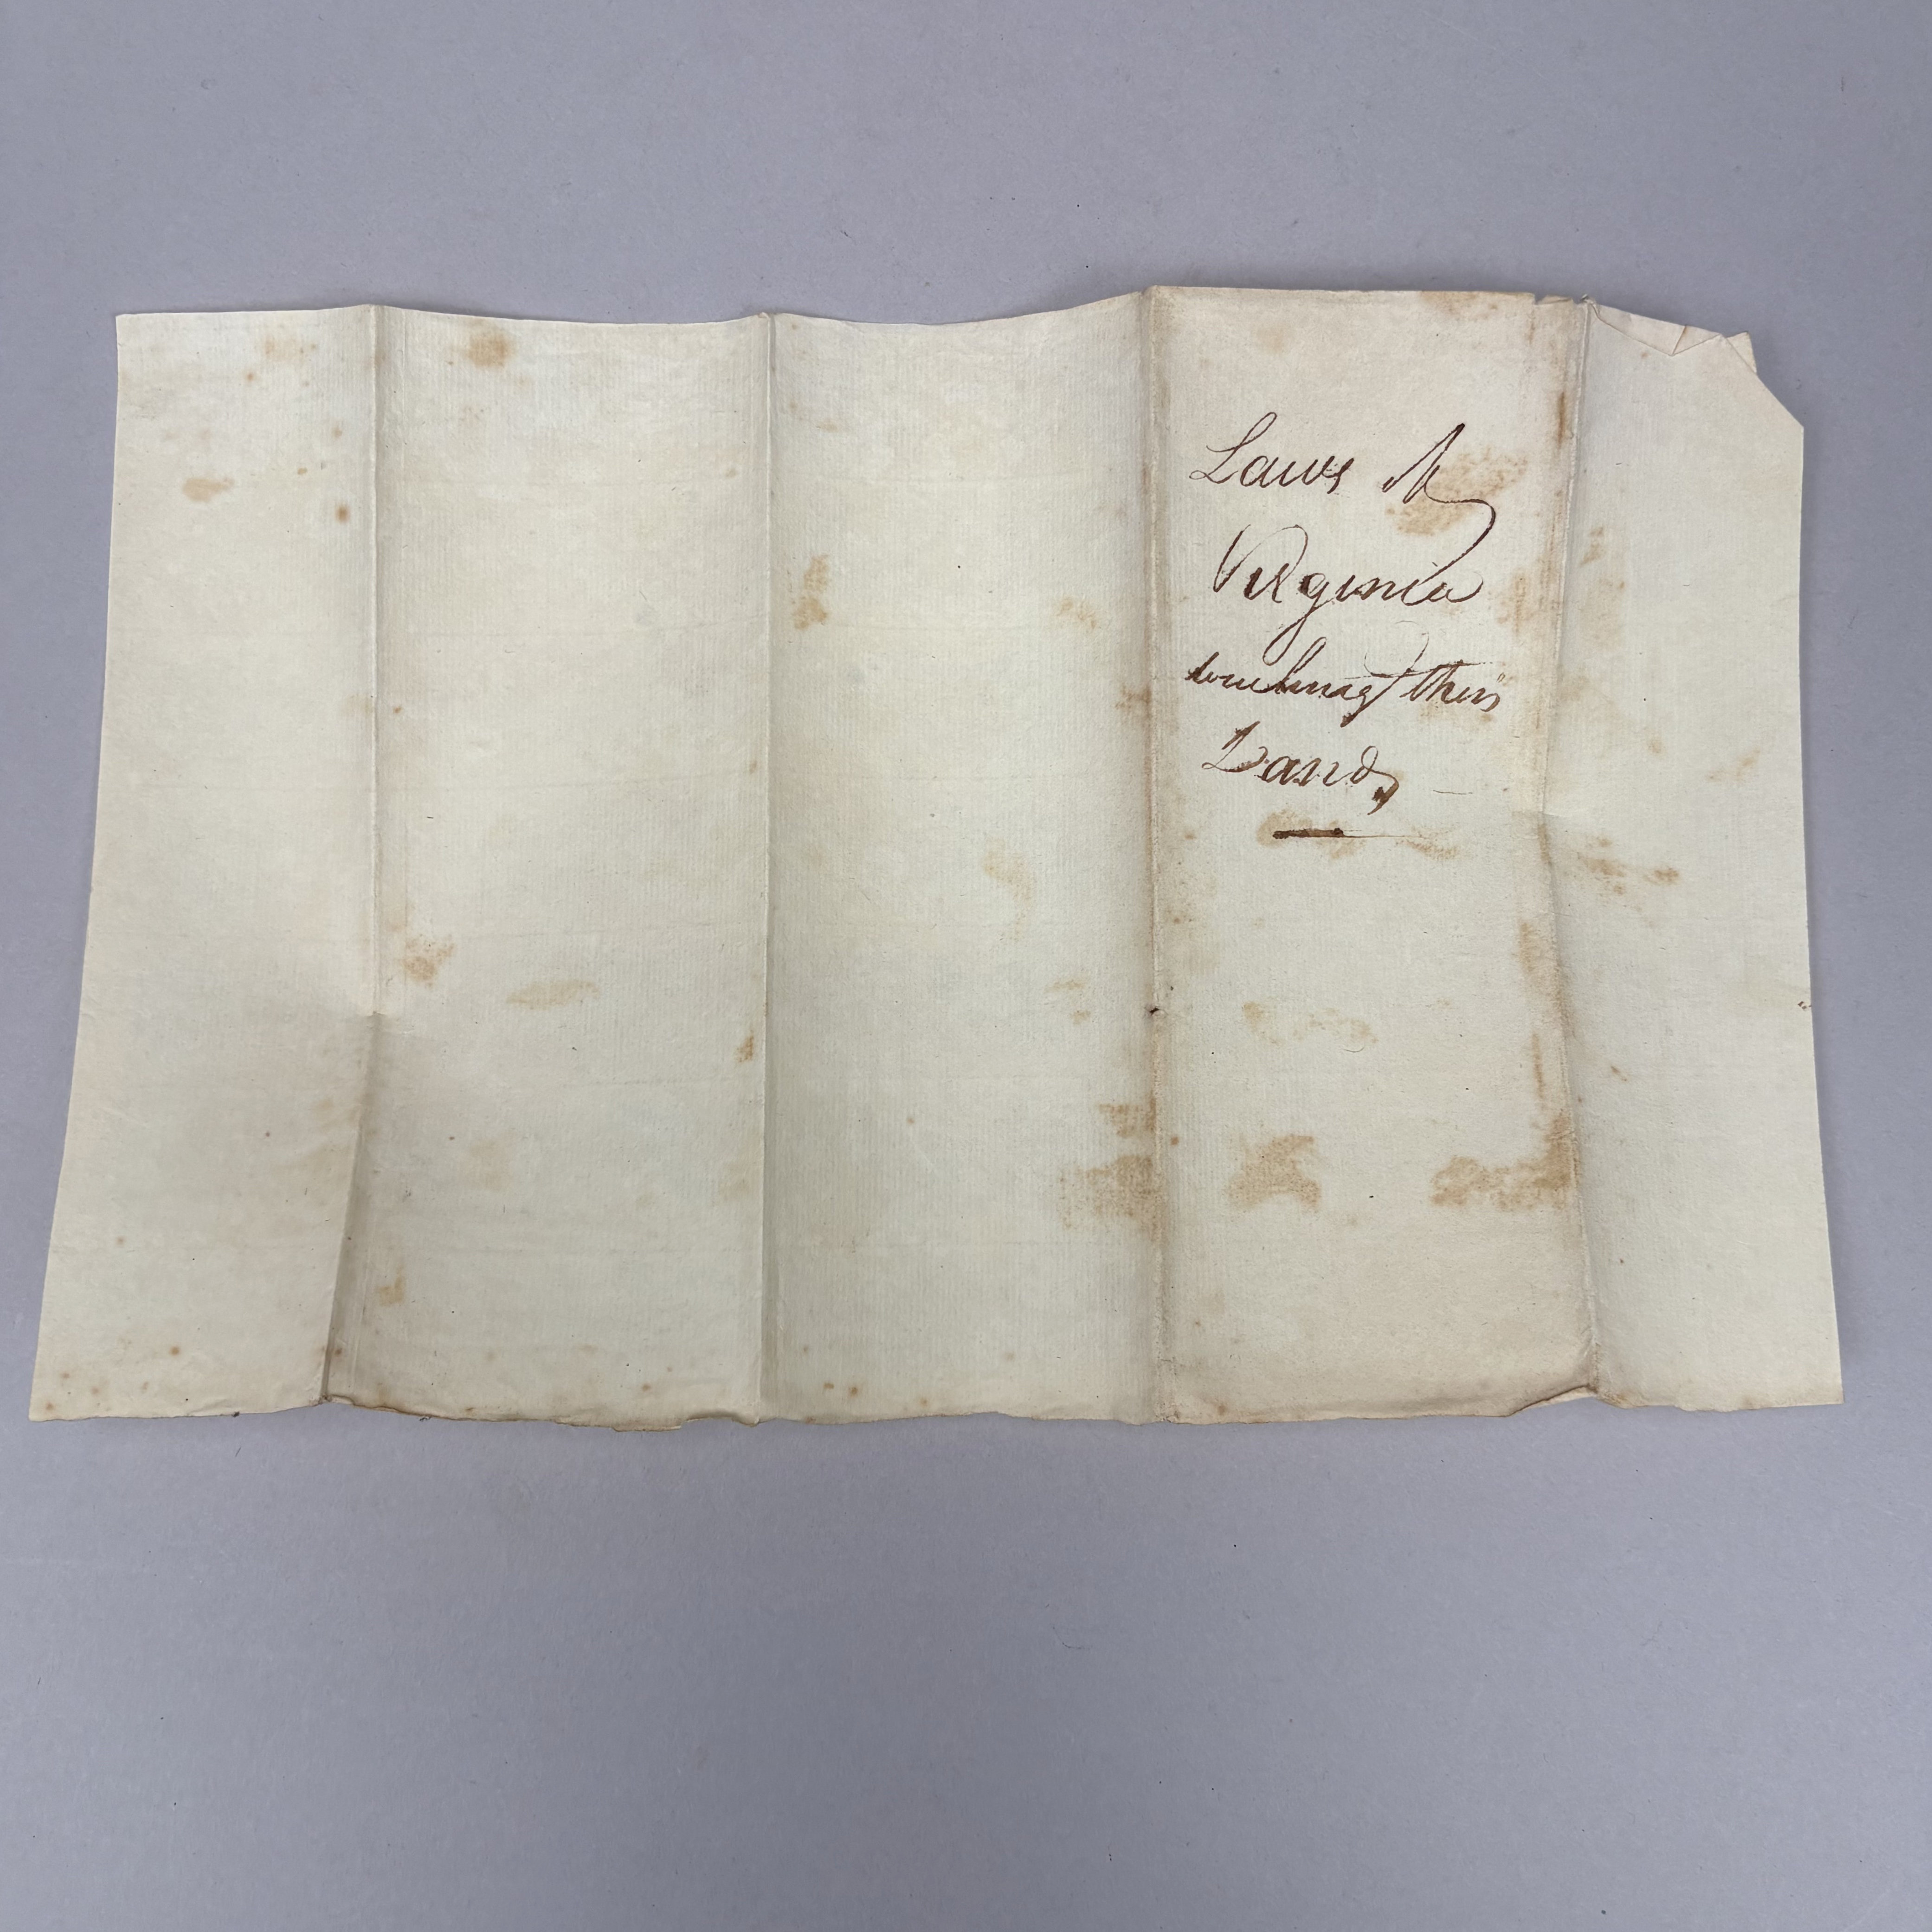 Laws of
Virginia
touching their
Lands